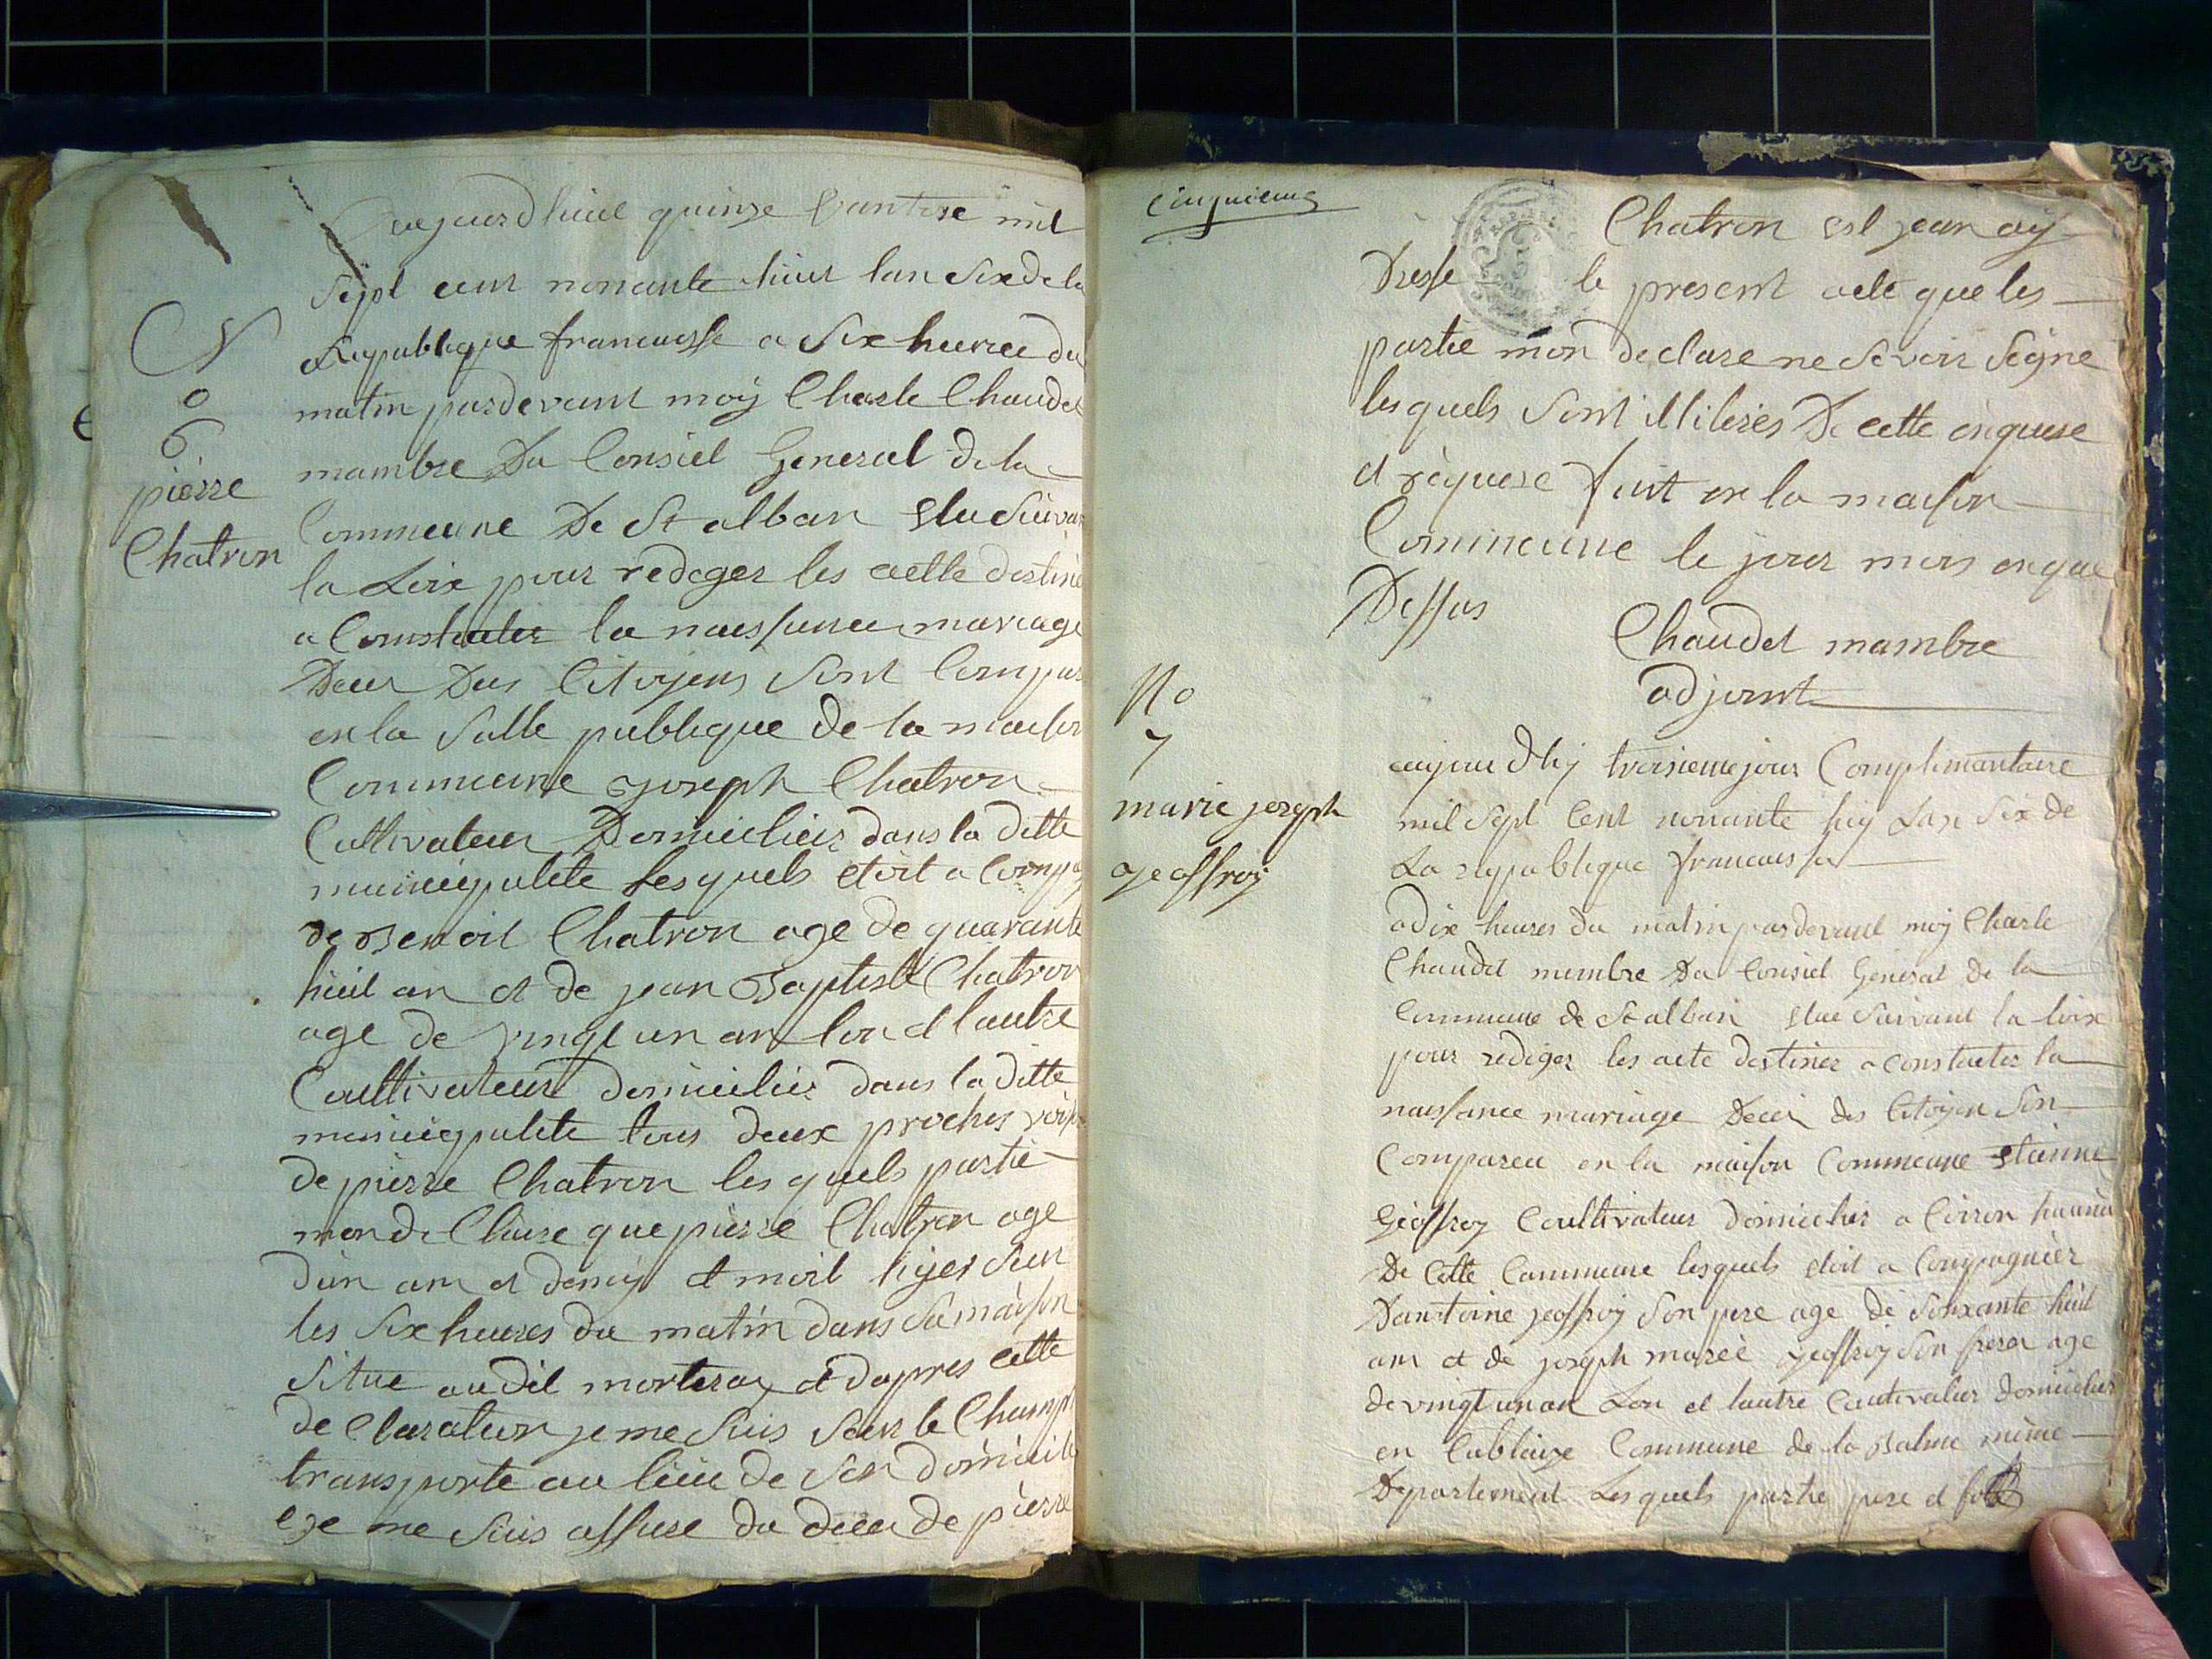 No
6
pierre
Chatron
aujourdhuit quinze vantose mil
Sept cent nonante huit lan Six de la
Republique francaisse a Six heures du
matin pardevant moy Charle Chaudet
mambre Du Consiel General de la
Commeune De St alban Elu Suivan
la Loix pour redeger les actte destiné
a Constater la naissance mariage
Deces Des Citoyens Sont Compar
en la Salle publique de la maison
Commeune joseph Chatron
Cultivateur Domicilier dans la ditte
municipalite lesquels etoit a Compag
de Benoit Chatron age de quarante
huit an et de jean Baptiste Chatron
age de vingt un an lon et lautre
Coultivateur domicilier dans la ditte
municipalite tous deux proches voisin
de pierre Chatron les quels partie
mon de Claire que pierre Chatron age
dun an et demy et mort hyer Sur
les Six heures du matin dans Sa maison
Situe audit morteray et dapres cette
de Claration je me Suis Sur le Champ
transporte au lieu de Son domicile
et je me Suis assure du deces de pierre
Cinquieme
Chatron est jean ay
Dresse le present acte que les
partie mon declare ne Savoir Signe
lesquels Sont illiteres De cette enquere
et requere fait en la maison
Commeune le jour mois an que
Dessus
Chaudet mambre
adjoint
No
7
marie joseph
geoffroy
aujourdhy troisieme jour Complimantaire
mil Sept Cent nonante huy Lan Six de
La republique francaisse
a dix heures du matin pardevant moy Charle
Chaudet membre Du Consiel General de la
Commeune de St alban Elue Suivant la loix
pour rediger les acte destinez a constater la
naissance mariage Deces des Citoyen Son
Comparu en la maison Commeune Etienne
Geoffroy Coultivateur Domicilier a Coiron
De Cette Commeune lesquels etoit a Compagnier
Dantoine geoffroy Son pere age de Soixante huit
an et de joseph marie geoffroy Son frere age
de vingt un an Lon et lautre Coutivateur Domicilier
en Commune de la Balme même
Departement Les quels partie pere et